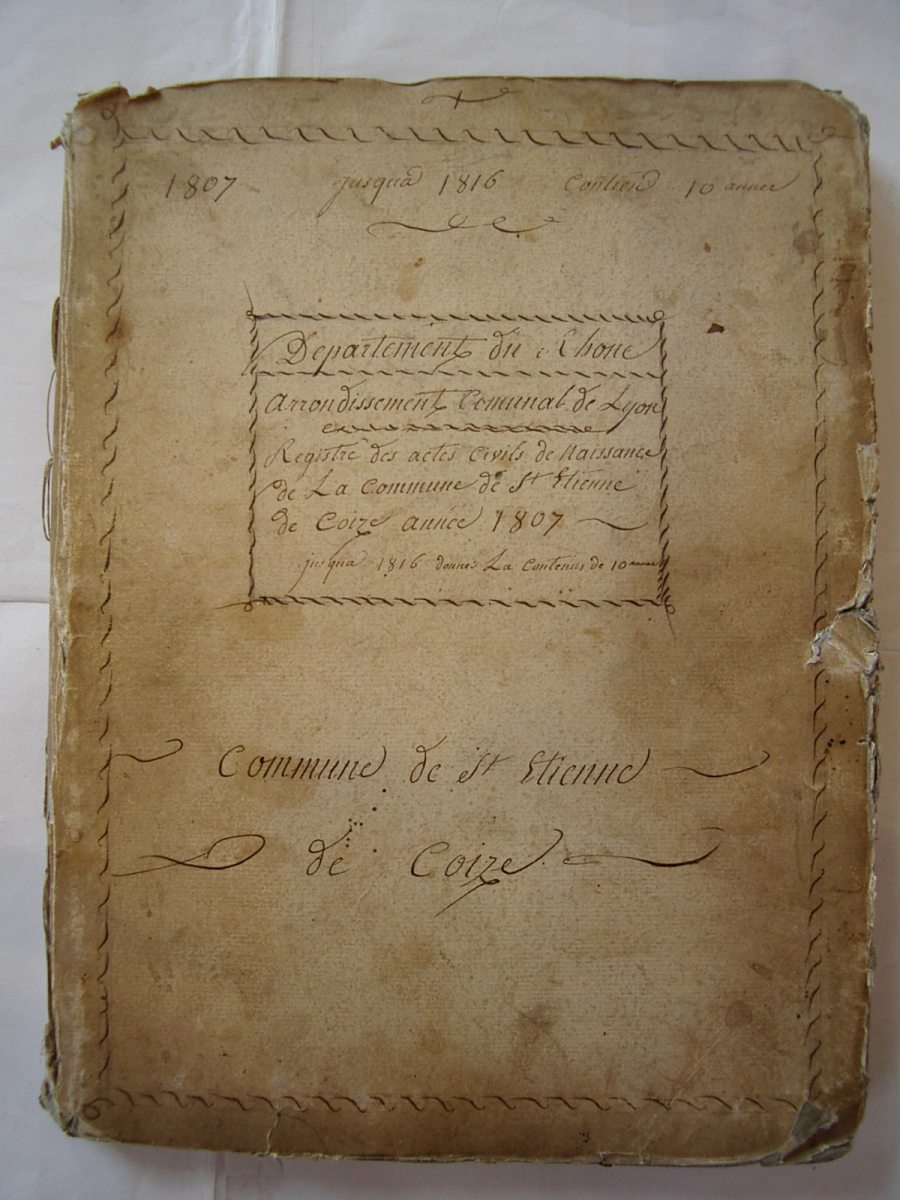 1807 jusqua 1816 Contiend 10 année
Departement du Rhone
Arrondissement Comunal de Lyon
Registre des actes Civils de Naissance
de La Commune de St Etienne
de Coize année 1807
jusqua 1816 donne La Contenus de 10 année
Commune de St Etienne
de Coize